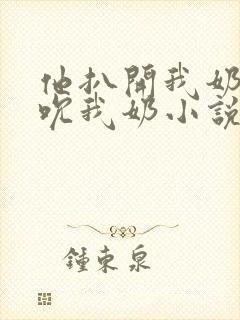 他扒開我奶
吮我奶小說
鍾東泉